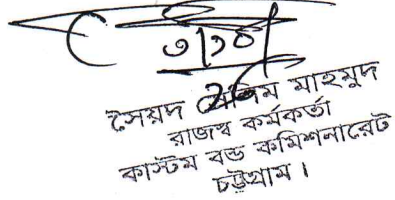 ৩/১০
সৈয়দ মাহমুদ
রাজস্ব কর্মকর্তা
কাস্টম বন্ড কমিশনারেট
চট্টগ্রাম।